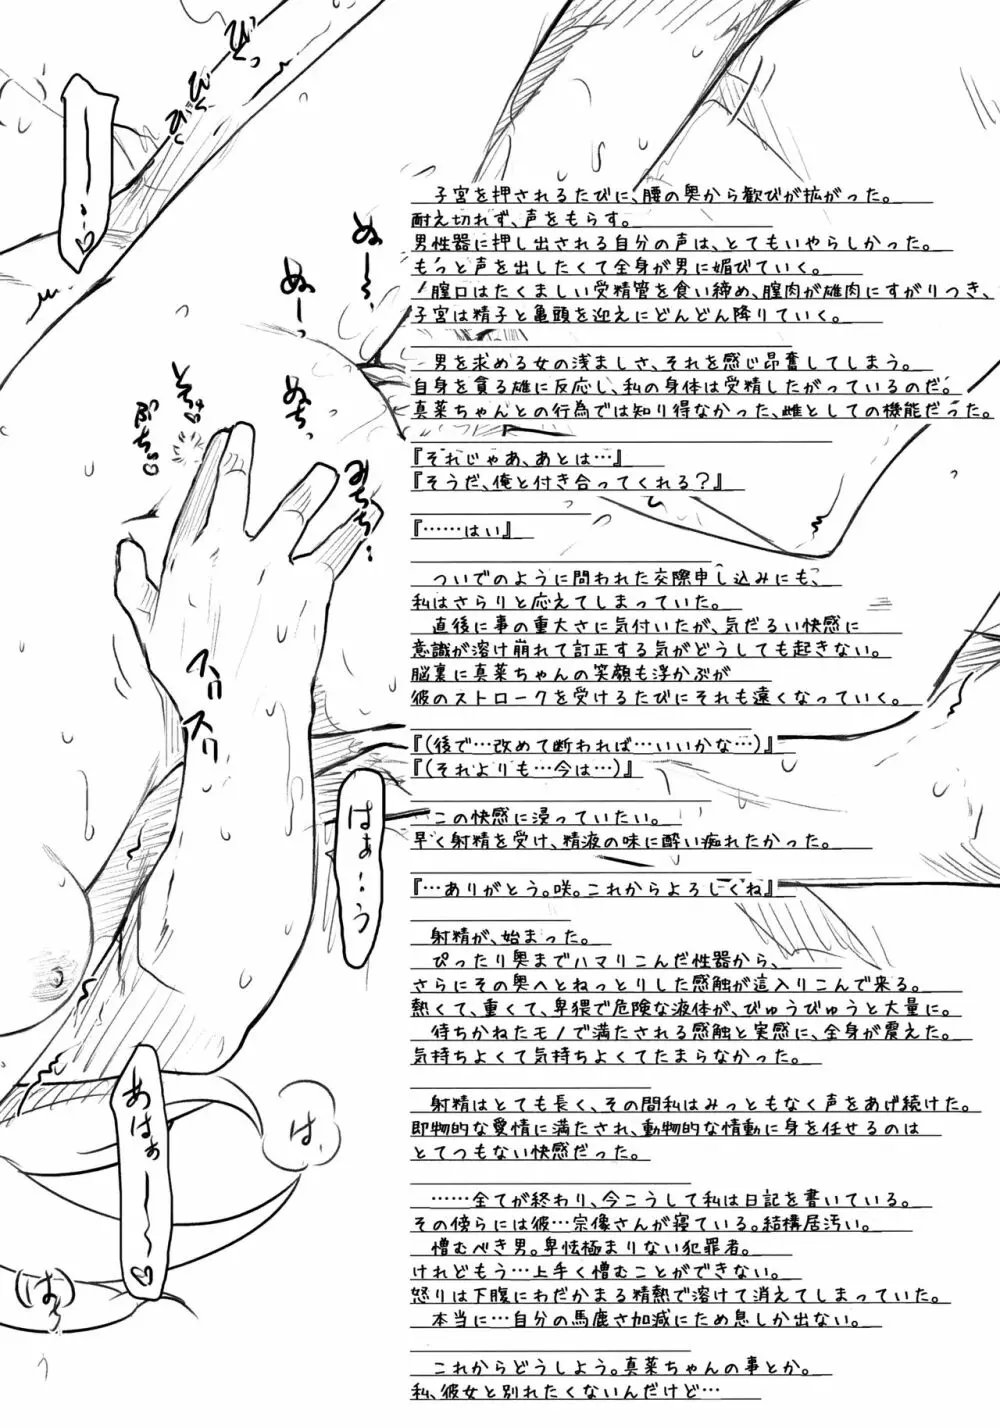 子宮を押されるたびに、腰の奥から歓びが拡がった。
耐え切れず、声をもらす。
男性器に押し出される自分の声は、とてもいやらしかった。
もっと声を出したくて全身が男に媚びていく。
膣口はたくましい受精管を食い締め、膣肉が雄肉にすがりつき、
子宮は精子と亀頭を迎えにどんどん降りていく。
男を求める女の浅ましさ、それを感じ昂奮してしまう。
自身を貪る雄に反応し、私の身体は受精したがっているのだ。
真菜ちゃんとの行為では知り得なかった、雌としての機能だった。
『それじゃあ、あとは…』
『そうだ、俺と付き合ってくれる?』
『……はい』
ついでのように問われた交際申し込みにも、
私はさらりと応えてしまっていた。
直後に事の重大さに気付いたが、気だるい快感に
意識が溶け崩れて訂正する気がどうしても起きない。
脳裏に真菜ちゃんの笑顔も浮かぶが
彼のストロークを受けるたびにそれも遠くなっていく。
『(後で…改めて断われば…いいかな…)』
『(それよりも…今は…)』
この快感に浸っていたい。
早く射精を受け、精液の味に酔い痴れたかった。
『…ありがとう。咲。これからよろしくね』
射精が、始まった。
ぴったり奥までハマりこんだ性器から、
さらにその奥へとねっとりした感触が這入りこんで来る。
熱くて、重くて、卑猥で危険な液体が、びゅうびゅうと大量に。
待ちかねたモノで満たされる感触と実感に、全身が震えた。
気持ちよくて気持ちよくてたまらなかった。
射精はとても長く、その間私はみっともなく声をあげ続けた。
即物的な愛情に満たされ、動物的な情動に身を任せるのは
とてつもない快感だった。
……全てが終わり、今こうして私は日記を書いている。
その傍らには彼…宗像さんが寝ている。結構居汚い。
憎むべき男。卑怯極まりない犯罪者。
けれどもう…上手く憎むことができない。
怒りは下腹にわだかまる精熱で溶けて消えてしまっていた。
本当に…自分の馬鹿さ加減にため息しか出ない。
これからどうしよう。真菜ちゃんの事とか。
私、彼女と別れたくないんだけど…
びくっ
びくびく
ーー…♡
ぬーっ
ぬーっ
ぬちっ
みちち…
ぷちゅ♡
スリ
スリ
はぁ…う
あはぁーー〜♡
は、
(はぅ)